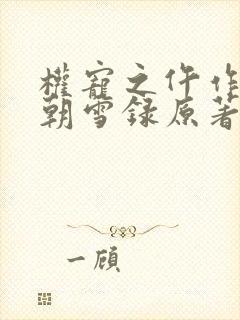 權寵之仵作
朝雪錄原著
一顧